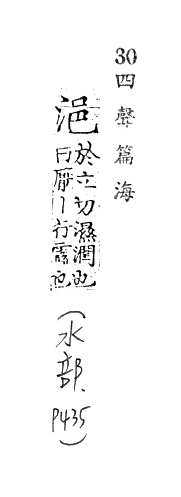 30四聲篇海
浥
於立切濕潤也
曰厭丨行露也
(水部. P435)